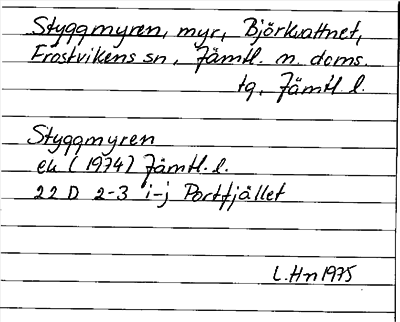 Styggmyren, myr, Björkvattnet,
Frostvikens sn, Jämtl. n. doms.
tg, Jämtl l.
Styggmyren
ek (1974) Jämtl. l.
22 D 2-3 i-j Portfjället
L.Hn 1975